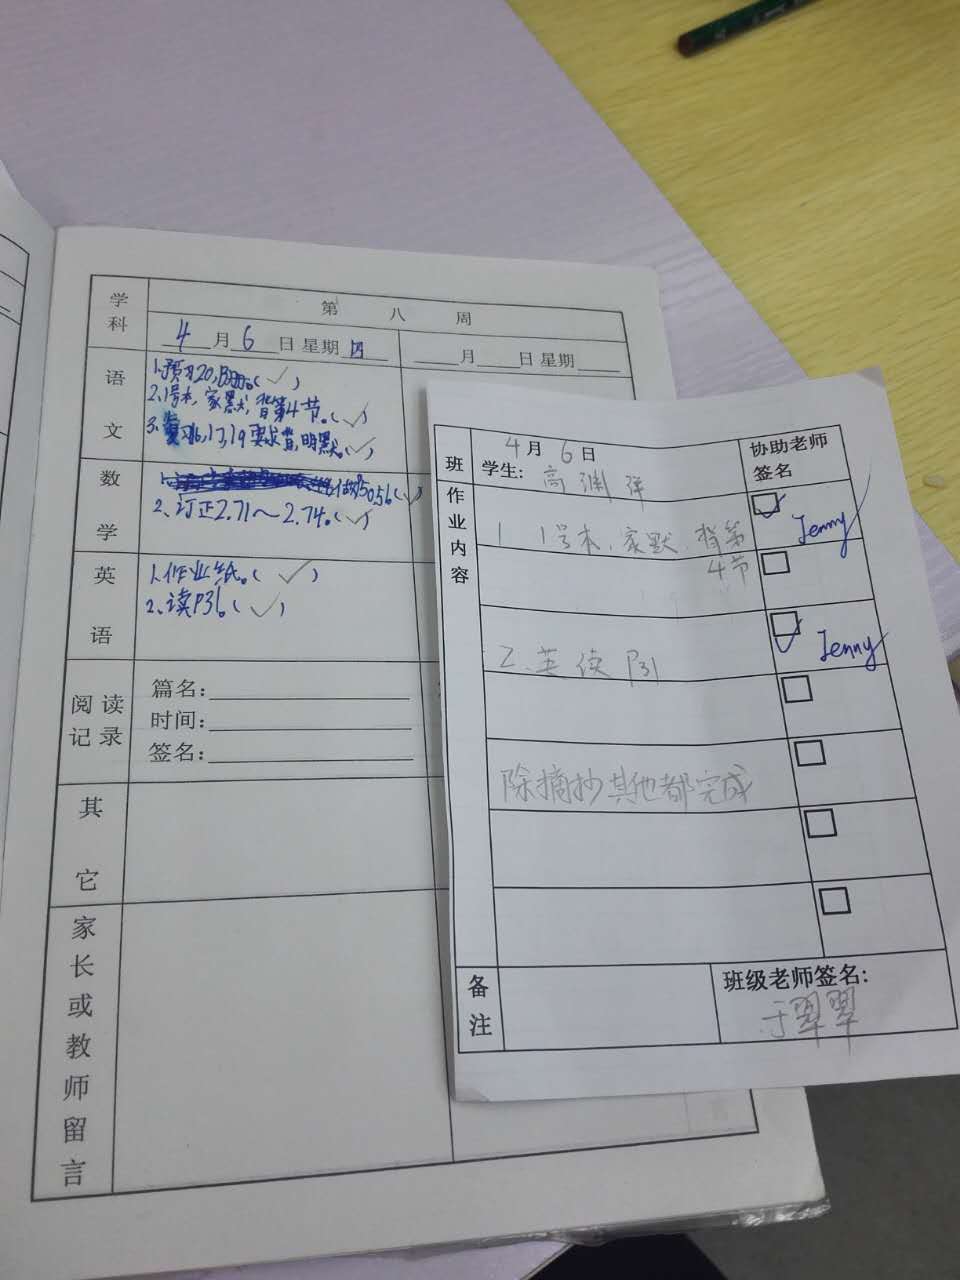 学科
第 八 周
4月6日星期四
___月___日星期___
语文
1.预习20,
2.1号本,家默,背第4节。(✓)
3.复习16,17,19要求背,明默。(✓)
数学
做P50,56(✓)
2、订正2.71～2.74。(✓)
英语
1.作业纸。(✓)
2、读P31。(✓)
阅读记录
篇名:
时间:
签名:
其它
家长或教师留言
班
4月6日
学生:高渊洋
协助老师签名
作业内容
1 1号本、家默、背第
4节
Jenny
2、英读P31
Jenny
除摘抄其他都完成
备注
班级老师签名:
于翠翠